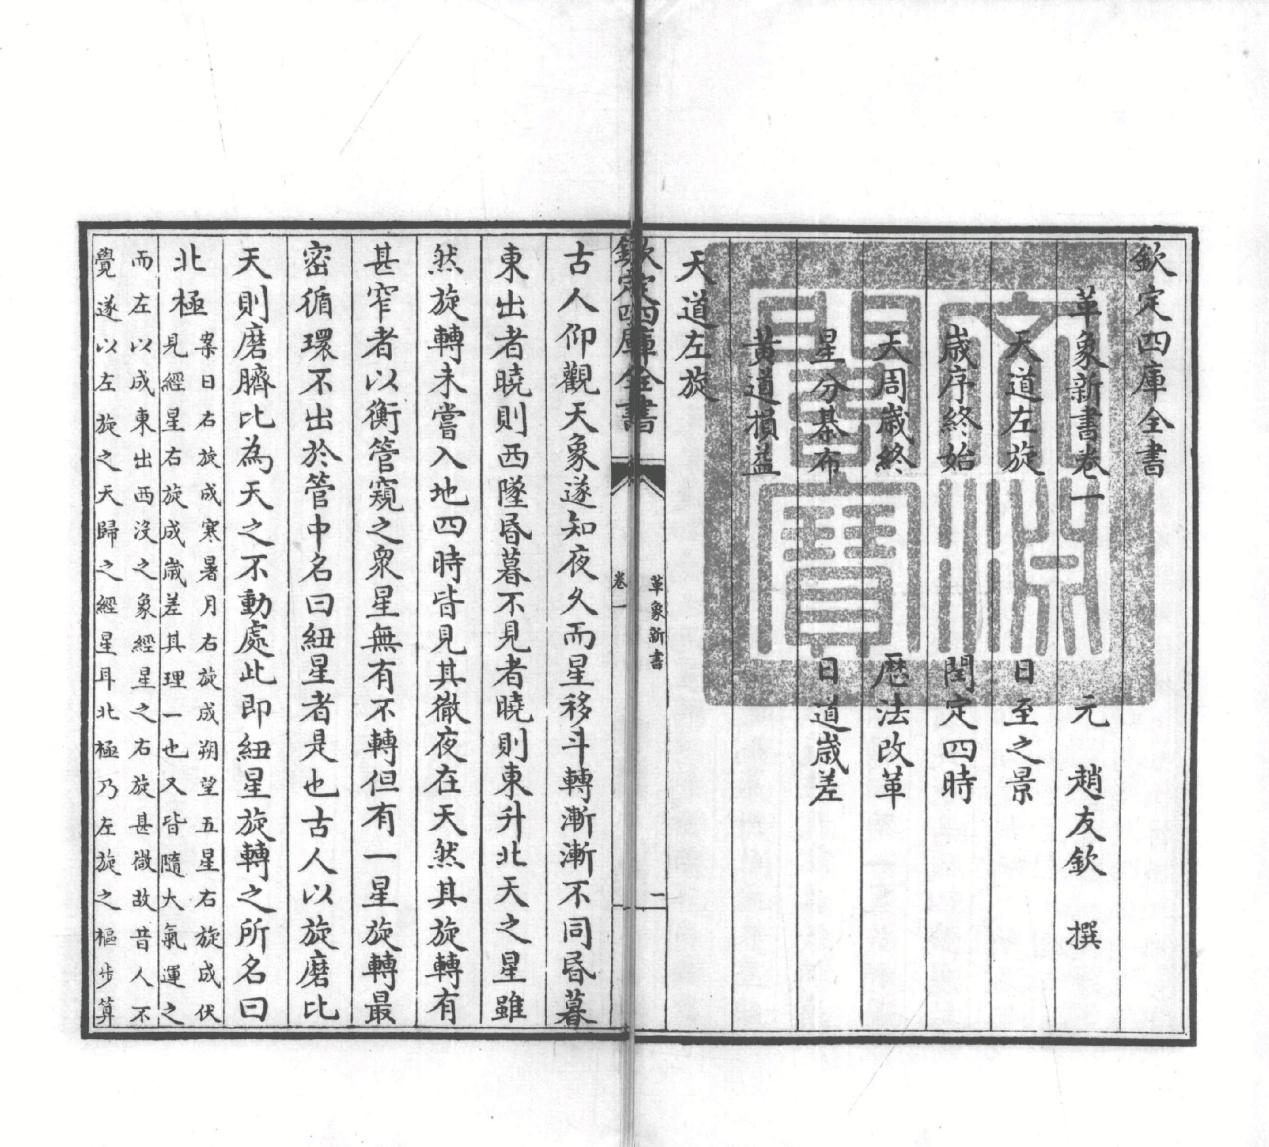 欽定四庫全書
革象新書卷一
元 趙友欽 撰
天道左旋 日至之景
歲序終始 閏定四時
天周歲終 厯法改革
星分棊布 日道歲差
黃道損益
天道左旋
欽定四庫全書 革象新書 卷一 一
古人仰觀天象遂知夜久而星移斗轉漸漸不同昏暮
東出者曉則西墜昏暮不見者曉則東升北天之星雖
然旋轉未嘗入地四時皆見其徹夜在天然其旋轉有
甚窄者以衡管窺之衆星無有不轉但有一星旋轉最
密循環不出於管中名曰紐星者是也古人以旋磨比
天則磨臍比為天之不動處此即紐星旋轉之所名曰
北極
案日右旋成寒暑月右旋成朔望五星右旋成伏
見經星右旋成歲差其理一也又皆隨大氣運之
而左以成東出西沒之象經星之右旋甚微故昔人不
覺遂以左旋之天歸之經星耳北極乃左旋之樞步算
文淵閣寶